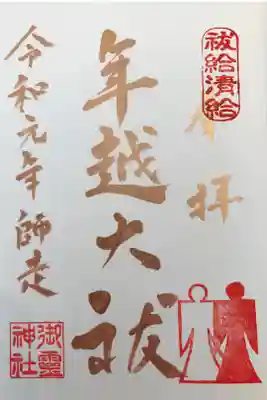 祓給清給
奉拝
年越大祓
令和元年師走
御霊神社